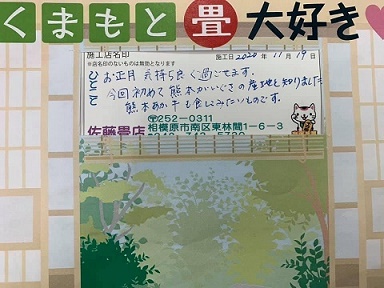 くまもと畳大好き
施工店名印
※店名印のないものは無効となります
施工日 2020年11月19日
ひとこと
お正月気持ち良く過ごせます。
今回初めて熊本がいぐさの産地と知りました
熊本あか牛も食してみたいものです。
〒252-0311
佐藤畳店 相模原市南区東林間1-6-3